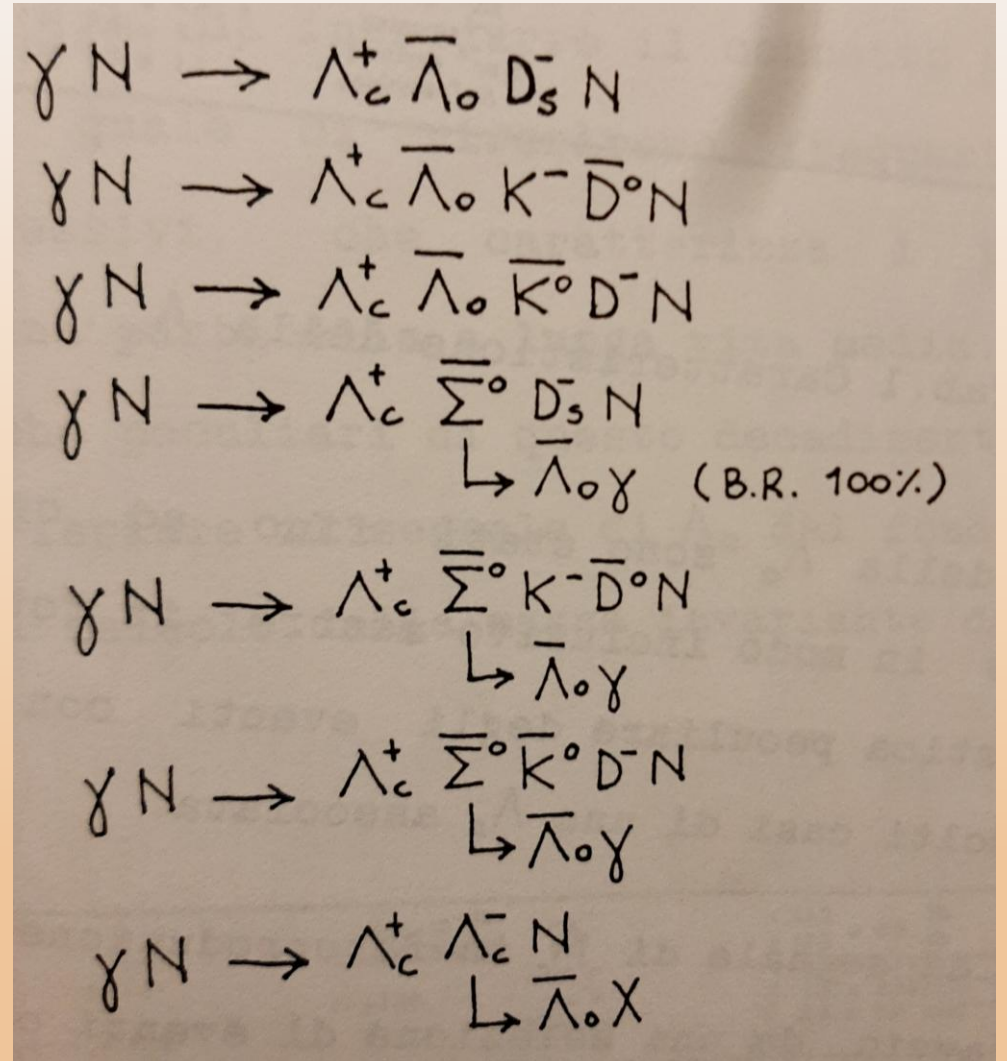 γ N → Λc⁺ Λ̅₀ Ds⁻ N
γ N → Λc⁺ Λ̅₀ K⁻ D̅⁰ N
γ N → Λc⁺ Λ̅₀ K̅⁰ D⁻ N
γ N → Λc⁺ Σ̅⁰ Ds⁻ N
↳ Λ̅₀ γ (B.R. 100%)
γ N → Λc⁺ Σ̅⁰ K⁻ D̅⁰ N
↳ Λ̅₀ γ
γ N → Λc⁺ Σ̅⁰ K̅⁰ D⁻ N
↳ Λ̅₀ γ
γ N → Λc⁺ Λc⁻ N
↳ Λ̅₀ X